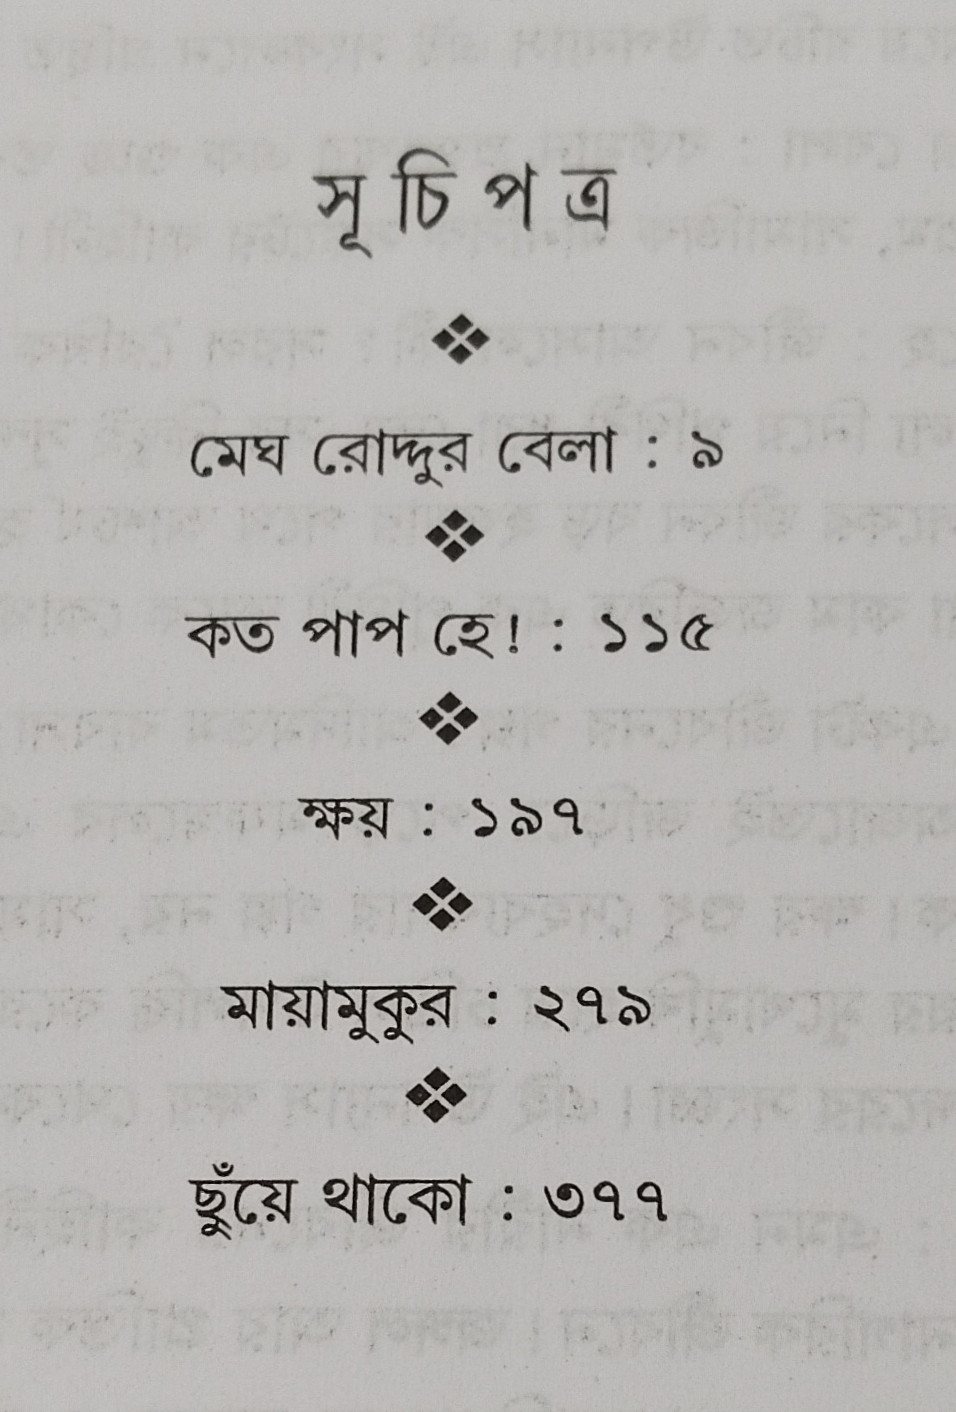 সূচিপত্র
মেঘ রোদ্দুর বেলা : ৯
কত পাপ হে! : ১১৫
ক্ষয় : ১৯৭
মায়ামুকুর : ২৭৯
ছুঁয়ে থাকো : ৩৭৭